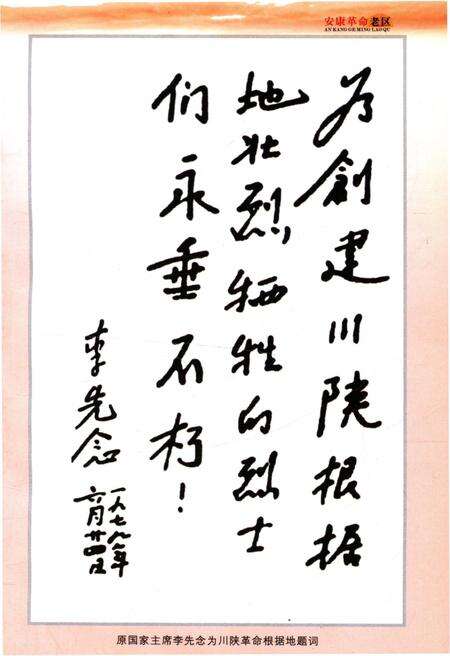 安康革命老区
AN KANG GE MING LAO QU
为創建川陕根据
地壮烈牺牲的烈士
们永垂不朽！
李先念
一九七九年
六月廿四日
原国家主席李先念为川陕革命根据地题词